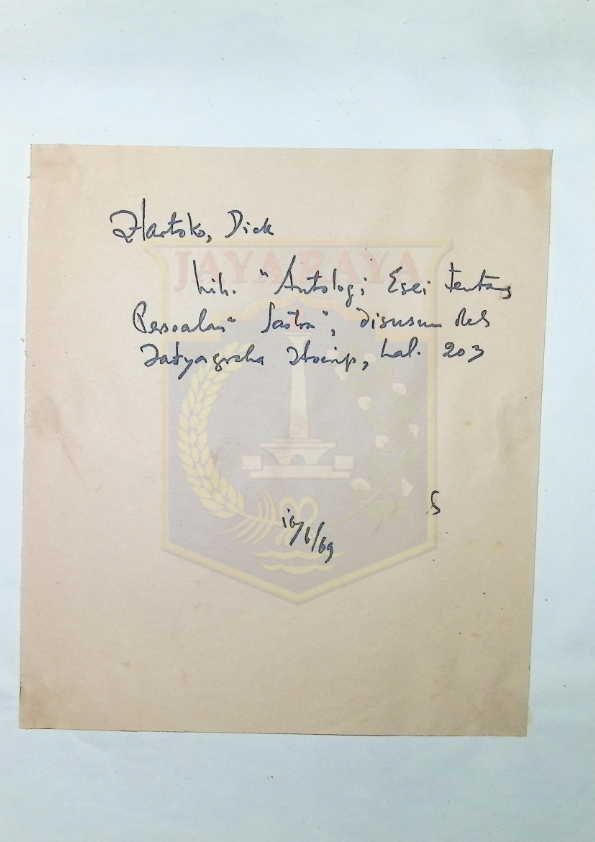 Hartoko, Dick
JAYA RAYA
lih. "Antologi Esei tentang
Persoalan² Sastra", disusun oleh
Satyagraha Hoerip, hal. 203
S
16/6/69